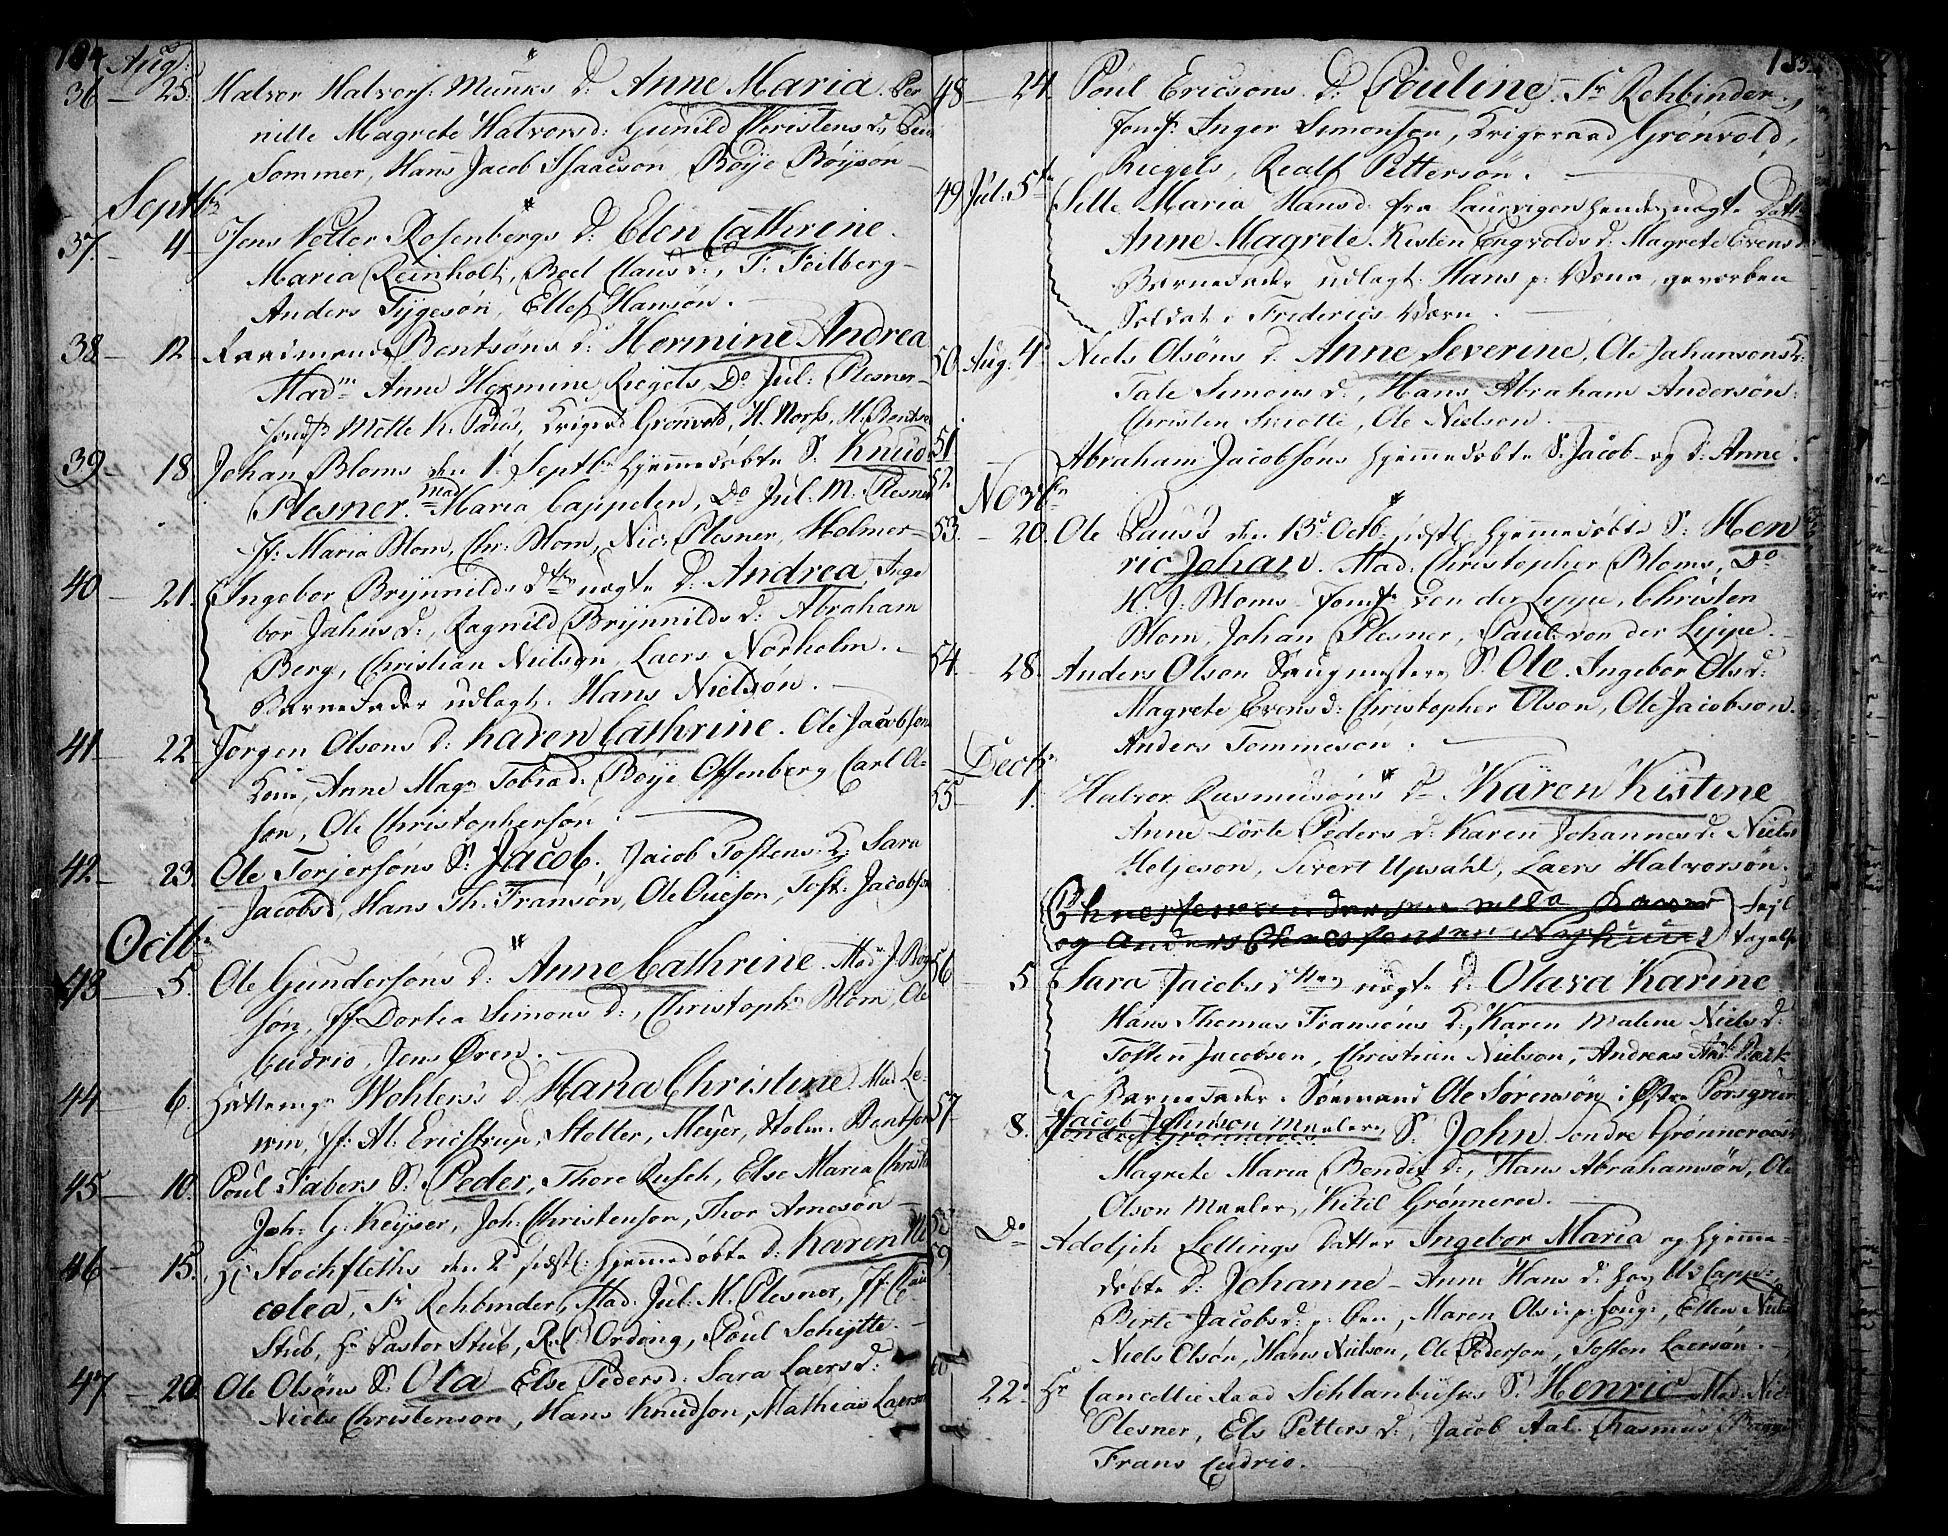 184 Aug:
36 - 25. Halvor Halvors: Munks d: Anne Maria. Per
nille Magrete Halvorsd: Gunild Christens d:
Sommer, Hans Jacob Isaacsøn, Böÿe Böÿsøn -
Septbr
37. 4 Jens Petter Rosenbergs d: Elen Cathrine.
Maria Reinholt, Beel Claus d:, F: Feilberg -
Anders Tÿgesøn, Ellef Hansøn.
38 - 12. Bentsøns d: Hermine Andrea
Madm Anne Hermine Riegels, Do Jul: Plesner -
Jomfr Mette K. Paus, Krigsrd Grønvold, H. Bentsøn
39. 18. Johan Bloms den 1. Septbr hjemmedøbte S: Knud
Plesner. Mad Maria Cappelen, Do Jul. M. Plesner
Jf: Maria Blom, Chr: Blom, Nic: Plesner, Holmer -
40 - 21. Ingebor Brÿnnilds dtrs uægte d: Andrea, Inge
bor Jahns d:, Ragnild Brÿnnilds d: Abraham
Berg, Christian Nielsøn, Laers Norholm. -
Barnefader udlagt. Hans Nielsøn.
41 - 22 Jørgen Olsons d: Karen Cathrine. Ole Jacobsøn
Kone, Anne Magr Tobiad: Böÿe Offenberg Carl Ol-
søn, Ole Christophersøn.
42 - 23. Ole Torjersøns S: Jacob, Jacob Tostens K: Sara
Jacobsd, Hans Th: Fransøn, Ole Ouesøn, Tost: Jacobsøn
Octbr
43 - 5. Ole Gundersøns d: Anne Cathrine. Mad. J. Böÿ
søn, Jf Dortea Simons d:, Christoph: Blom, Ole
Cudrio, Jens Øren.
44 - 6. Wohlers d: Maria Christine. Mad Le-
win, Jf: Al: Ericstrup, Møller, Meÿer, Holm. Bentsøn
45 - 10. Poul Fabers S: Peder, Thore Rusch, Else Maria Christ
Joh: G: Keÿser, Joh: Christensøn, Thor Arnesøn -
46 - 15. Hr Stochfleths den 2d hjemmedøbte d: Karen Ni
colea, Fr Rehbinder, Mad. Jul: M. Plesner, Jf:
Stub, Hr Pastor Stub, Ording, Poul Schÿtte -
47 - 20 Ole Olsøns S: Ola Else Peders d: Sara Laers d:
Niels Christensøn, Hans Knudsøn, Mathias Laersøn
185
48 - 24. Poul Ericsons d: Pouline. Fr Rehbinder,
Jomfr. Inger Simonsøn, Krigsraad Grønvold,
Riegels, Realf Pettersøn.
49 Jul. 5te Sille Maria Hansd. fra Laurvigen hendes uægte Datter
Anne Magrete. Kisten Engvolds d: Magrete Evens d:
Barnefader udlagt. Hans gevorben
Soldat i Frederics Værn.
50. Aug. 4d Niels Olsøns d: Anne Severine, Ole Johansons K:
Tale Simons d:, Hans Abraham Andersøn:
Christen Smette, Ole Nielsøn.
51
52. Abraham Jacobsøns hjemmedøbte S. Jacob - og d: Anne.
Novbr
53. - 20. Ole Pauss den 13d Octb hjemmedøbte S: Hen
ric Johan. Mad: Christopher Bloms, Do
H. J. Bloms Jomfr von der Lippe, Christen
Blom, Johan Plesner, Paul von der Lippe. -
54. 28. Anders Olson Saugmesters S: Ole. Ingebor Ols d:
Magrete Evens d: Christopher Olson, Ole Jacobson.
Anders Tommesøn.
Dectbr
55 - 1. Halvor Rasmusøns d: Karen Kistine
Anne Dorte Peders d: Karen Johannes d: Niels
Heljeson, Sivert Upsahl, Laers Halvorsøn.
og Anders
56 5 Sara Jacobs dtrs uægte d: Olava Karine
Hans Thomas Fransøns K:, Karen Malene Niels d:
Tosten Jacobsen, Christian Nielson, Andreas
Barnefader Sømand Ole Sørensøn i Østre Porsgrun
57 8. Jacob Johnson Mæler S: John. Sondre Grønneroes K
Magrete Maria Bendix d:, Hans Abrahamsøn, Ole
Olson Mæler, Kitil Grønneroe. -
58
59 Do Adolph Sellings Datter Ingebor Maria og hjemme-
døbte d: Johanne - Anne Hans d:
Birte Jacobs d: p: Øen, Maren Ols d: p: Houg, Ellen Niels
Niels Olsøn, Hans Nielson, Ole Pedersøn, Tosten Laersøn. -
60 22. Hr Cancellie Raad Schlanbusches S: Henric Mad. Nic
Plesner, Els Petters d:, Jacob Aal. Rasmus
Frans Cudrio.